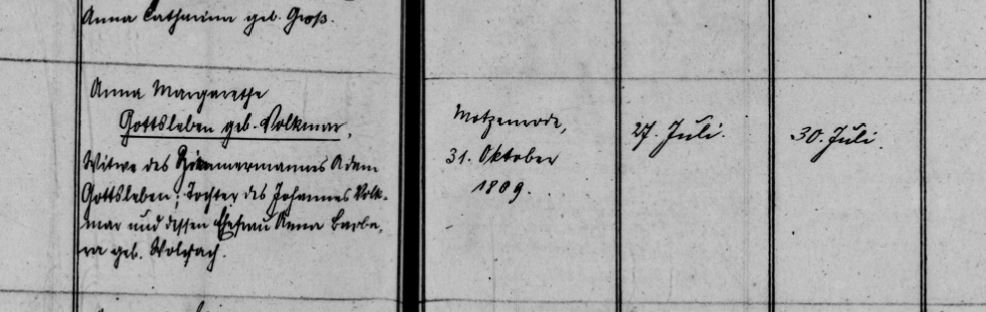 Anna Catharina geb. Groß.
Anna Margarethe
Gottsleben geb. Volkmar,
Witwe des Zimmermannes Adam
Gottsleben; Tochter des Johannes Volk-
mar und dessen Ehefrau Anna Barba-
ra geb.
Motzenrode,
31. Oktober
1809.
27. Juli.
30. Juli.